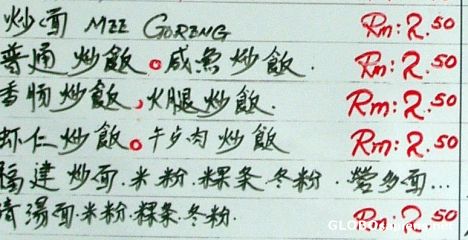 炒面 MEE GORENG Rm: 2.50
普通炒飯。咸魚炒飯. Rm: 2.50
香腸炒飯,火腿炒飯. Rm: 2.50
虾仁炒飯。午歺肉炒飯 Rm: 2.50
福建炒面.米粉.粿条.冬粉.營多面...
清湯面.米粉.粿条.冬粉. Rm: 2.50